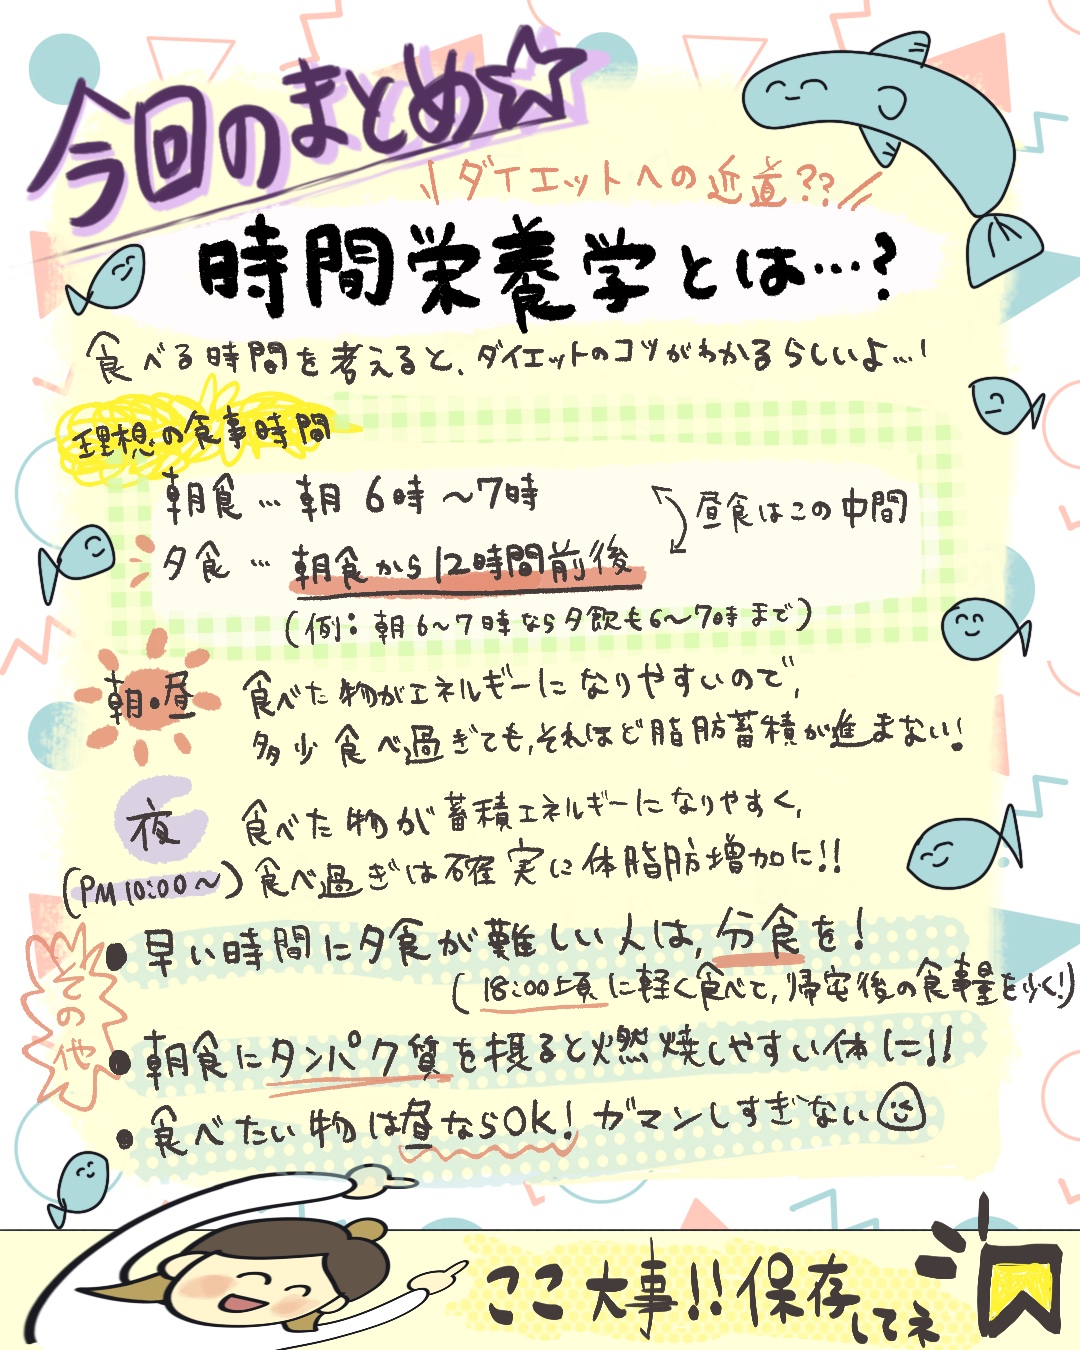 今回のまとめ☆
ダイエットへの近道??
時間栄養学とは…?
食べる時間を考えると、ダイエットのコツがわかるらしいよ…!
理想の食事時間
朝食…朝6時〜7時
夕食…朝食から12時間前後
昼食はこの中間
(例:朝6〜7時なら夕飲も6〜7時まで)
朝・昼
食べた物がエネルギーになりやすいので、
多少食べ過ぎても、それほど脂肪蓄積が進まない!
夜
(PM10:00〜)
食べた物が蓄積エネルギーになりやすく、
食べ過ぎは確実に体脂肪増加に!!
その他
●早い時間に夕食が難しい人は、分食を!
(18:00頃に軽く食べて、帰宅後の食事量を少く!)
●朝食にタンパク質を摂ると燃焼しやすい体に!!
●食べたい物は昼ならOK!ガマンしすぎない
ここ大事!!保存してネ